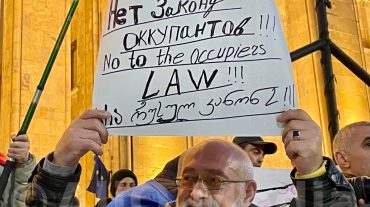 Нет Закону
оккупантов!!!
No to the Occupiers
LAW!!!
არა რუსულ კანონს!!!